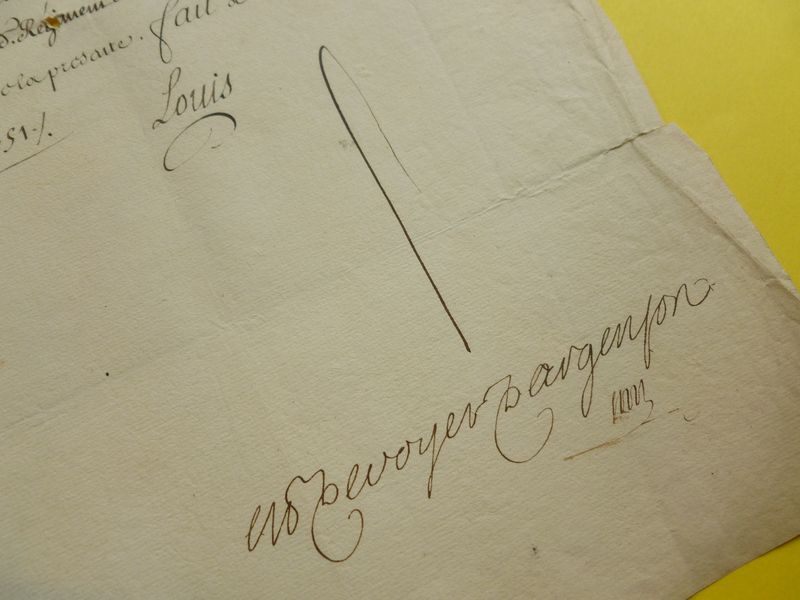 d. Régiment
la presante. fait
51 /.
Louis
De voyer D argenson